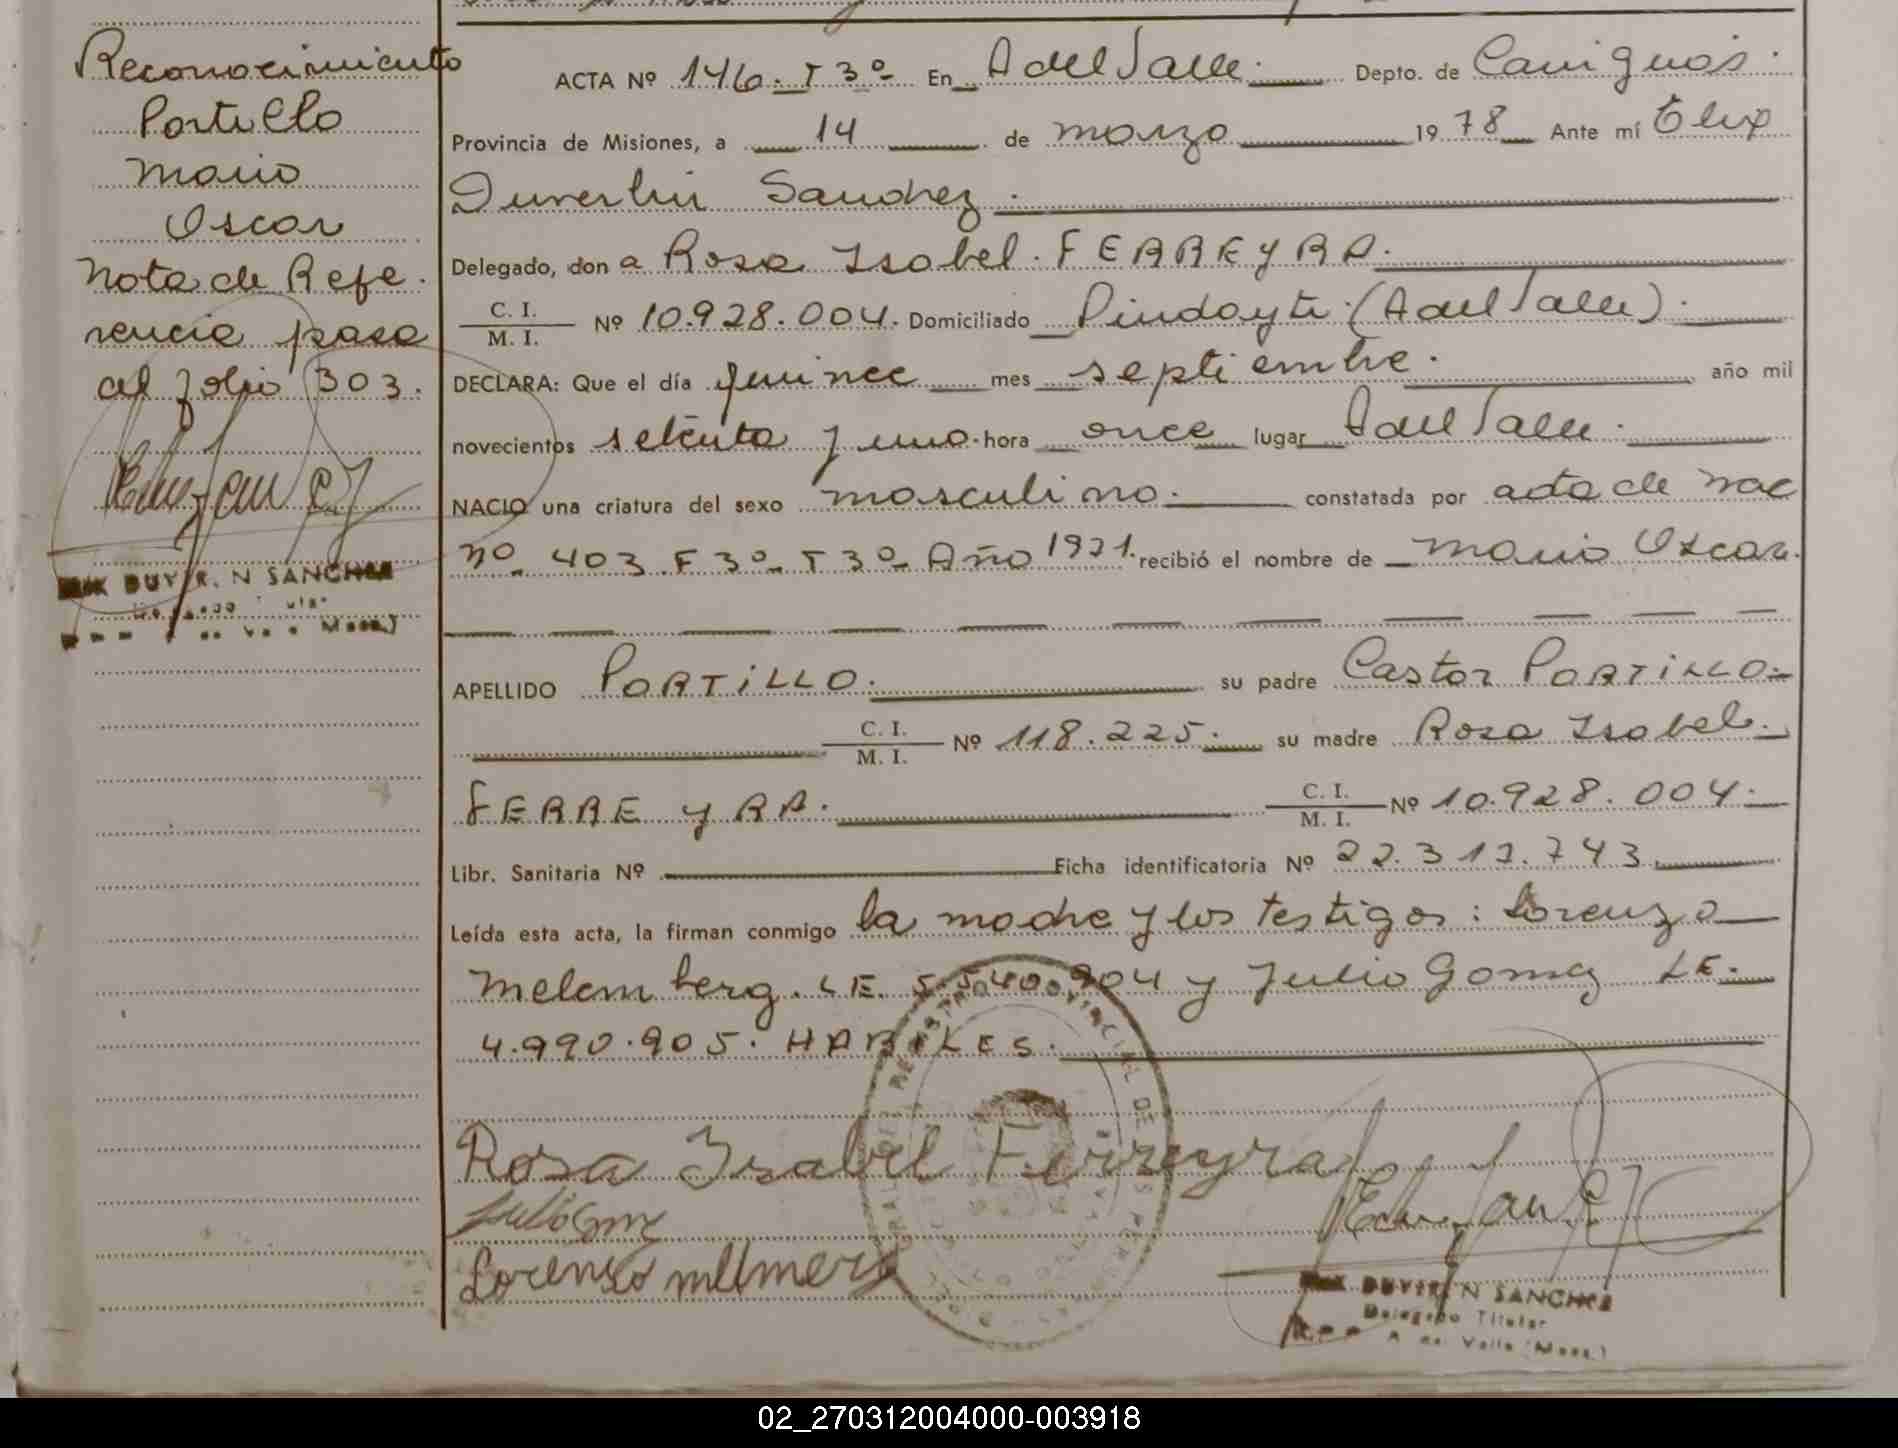 Reconocimiento
Portillo
Mario
Oscar
Nota de Refe.
rencia pasa
al folio 303.
DUVER. N SANCHEZ
ACTA Nº 146. T 3º En A del Valle. Depto. de Cainguás.
Provincia de Misiones, a 14 de marzo 1978 Ante mí Elix
Duverlin Sanchez.
Delegado, don a Rosa Isabel. FERREYRA.
C. I.
M. I. Nº 10.928.004. Domiciliado Pindayti (A del Valle).
DECLARA: Que el día quince mes septiembre. año mil
novecientos setenta y uno. hora once lugar A del Valle.
NACIO una criatura del sexo masculino. constatada por acta de nac
nº 403 F 3º T 3º Año 1971. recibió el nombre de Mario Oscar.
APELLIDO PORTiLLO. su padre Castor PORTiLLO.
C. I.
M. I. Nº 118.225. su madre Rosa Isabel.
FERREyRA. C. I.
M. I. Nº 10.928.004.
Libr. Sanitaria Nº Ficha identificatoria Nº 22.312.743
Leída esta acta, la firman conmigo la madre y los testigos: Lorenzo
Melemberg. LE. 5.540.904 y Julio Gomez LE.
4.990.905. HABILES.
REGISTRO PROVINCIAL DE
Rosa Isabel Ferreyra
Julio Gmz
Lorenzo
DUVER. N SANCHEZ
Delegado Titular
A del Valle (Mnes.)
02_270312004000-003918